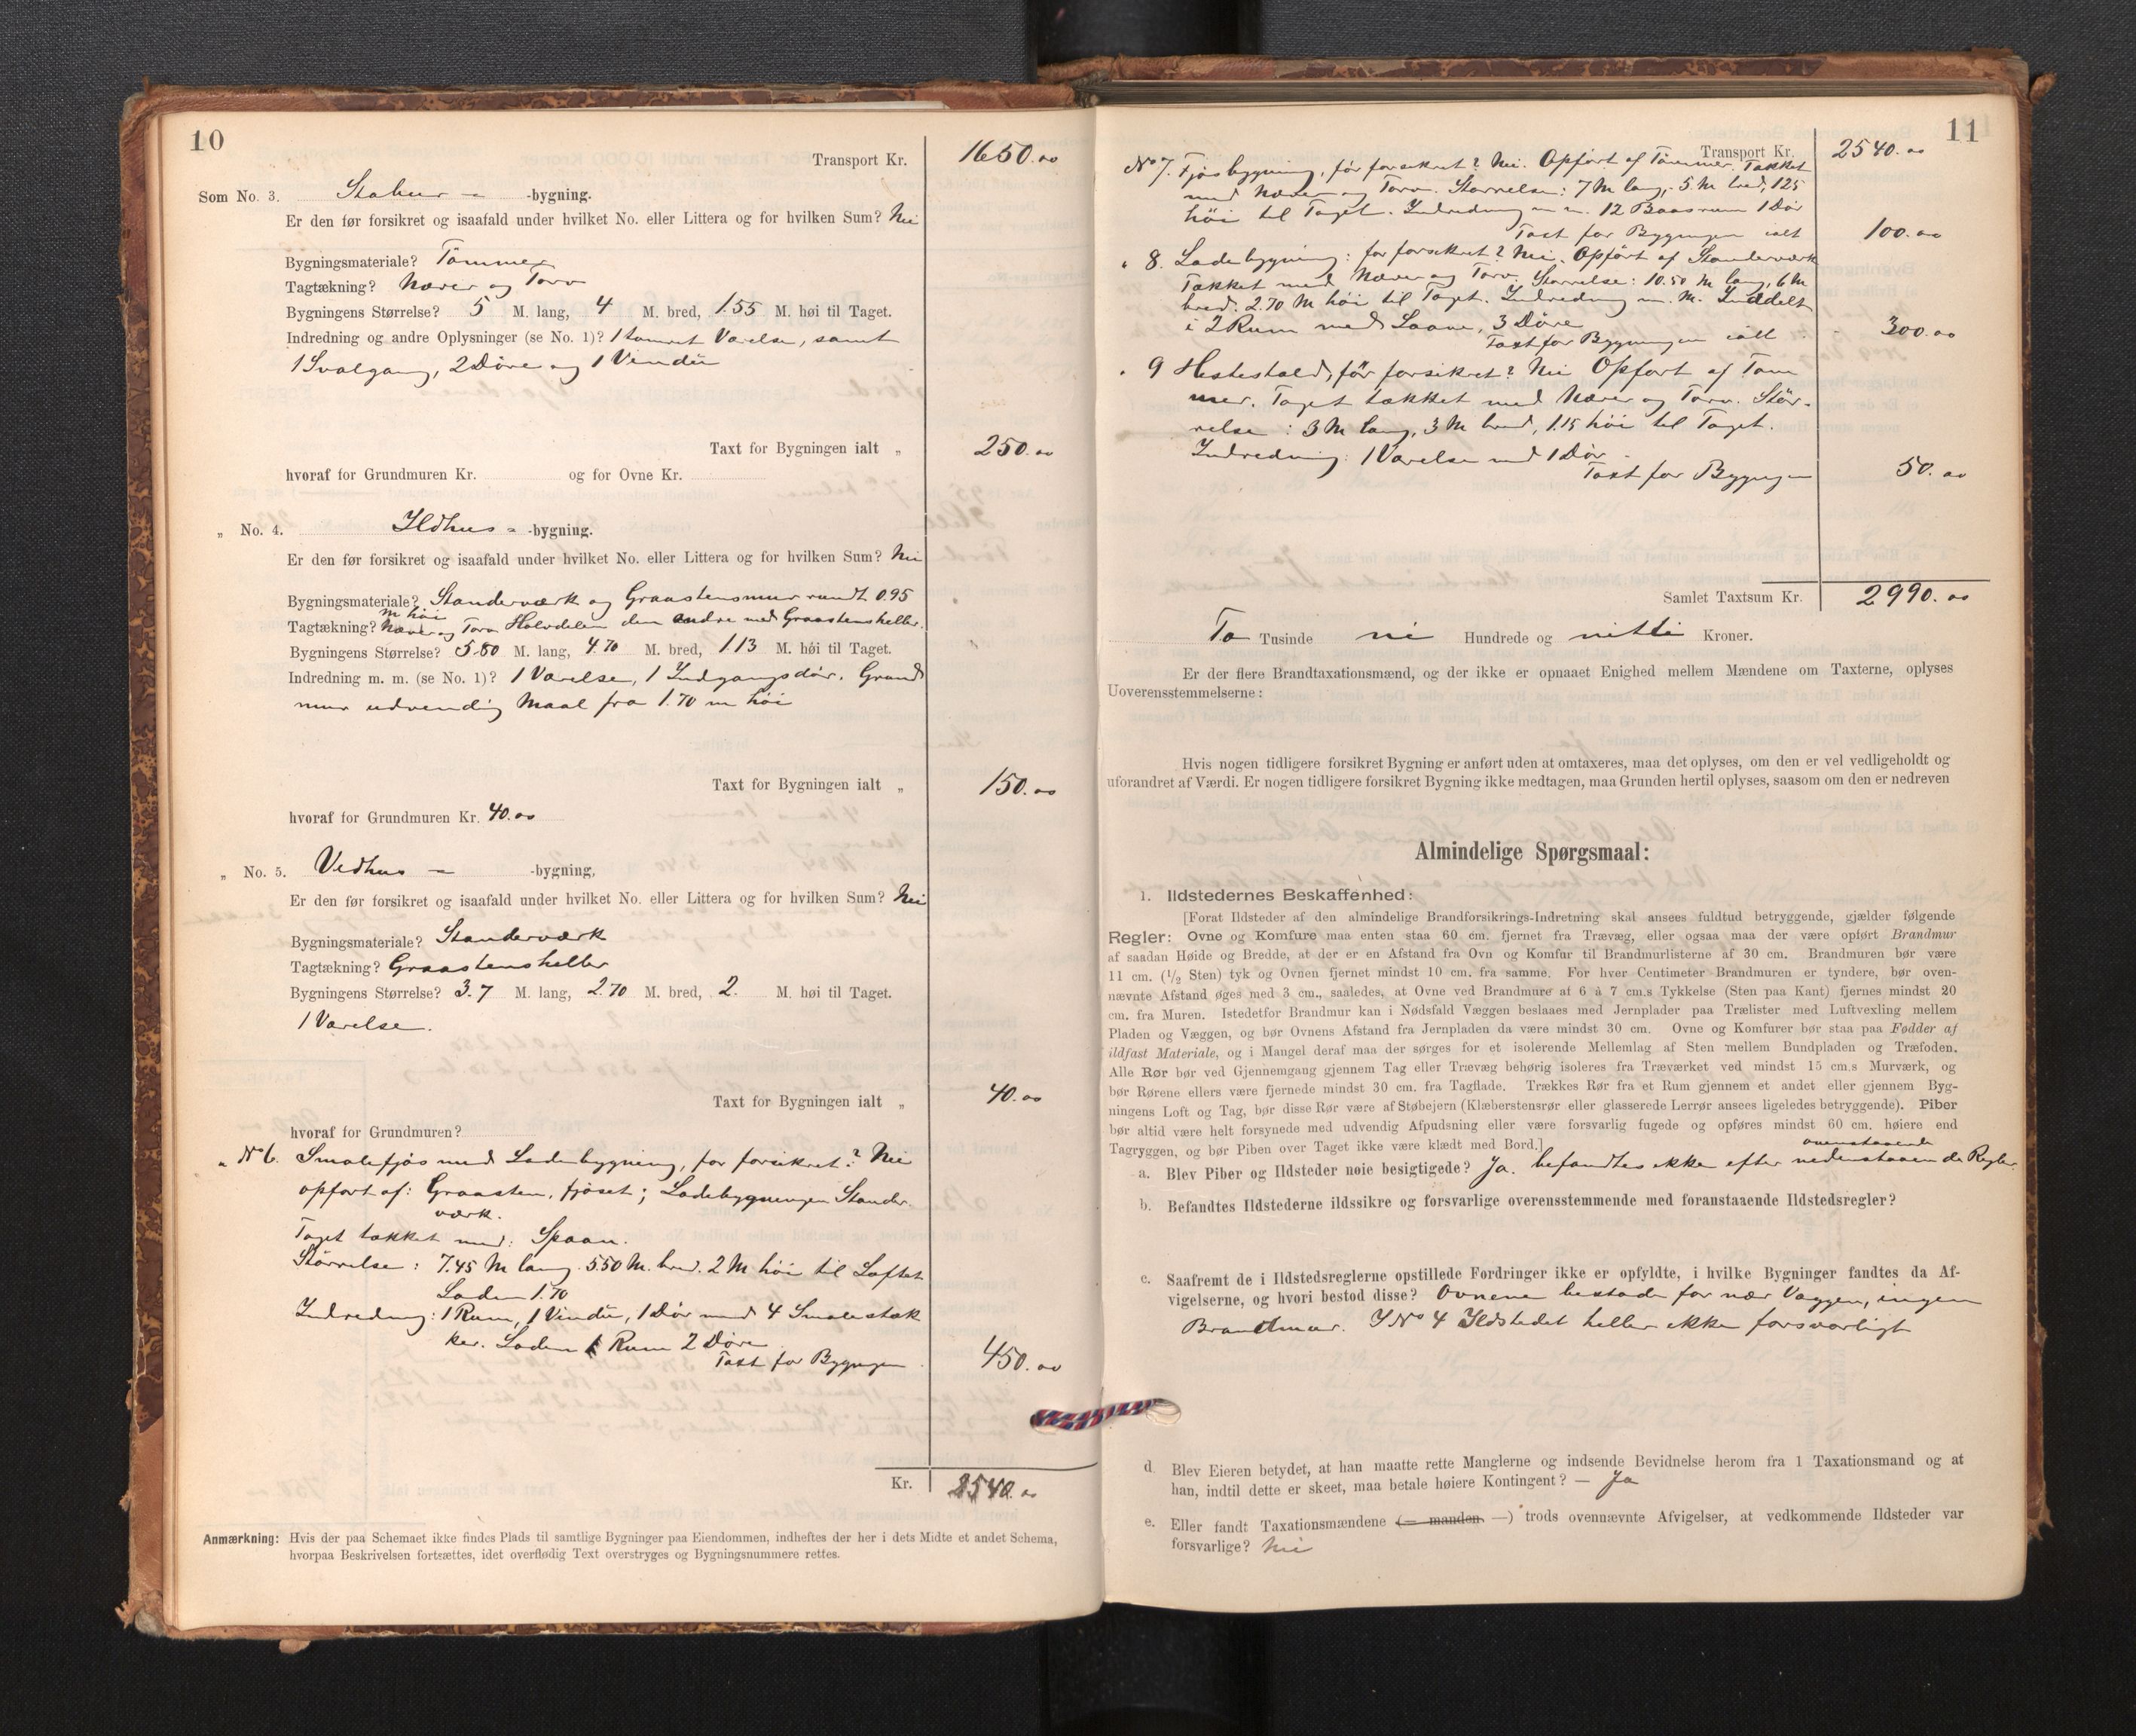 10
Transport Kr. 1650.00
Som No. 3. Stabur - -bygning.
Er den før forsikret og isaafald under hvilket No. eller Littera og for hvilken Sum? Nei
Bygningsmateriale? Tömmer
Tagtækning? Næver og Torv
Bygningens Størrelse? 5 M. lang, 4 M. bred, 1.55 M. høi til Taget.
Indredning og andre Oplysninger (se No. 1)? 1 tömret Værelse, samt
1 Svalgang, 2 Döre og 1 Vindü
Taxt for Bygningen ialt „ 250.00
hvoraf for Grundmuren Kr. og for Ovne Kr.
„ No. 4. Ildhus - -bygning.
Er den før forsikret og isaafald under hvilket No. eller Littera og for hvilken Sum? Nei
Bygningsmateriale? Standerværk og Graastensmur rundt 0.95
m höi
Tagtækning? Næver og Torv Halvdelen den andre med Graastensheller.
Bygningens Størrelse? 5.80 M. lang, 4.70 M. bred, 1.13 M. høi til Taget.
Indredning m. m. (se No. 1)? 1 Værelse, 1 Indgangsdör. Grund
mur udvendig Maal fra 1.70 m höi
Taxt for Bygningen ialt „ 150.00
hvoraf for Grundmuren Kr. 40.00
„ No. 5. Vedhus - -bygning,
Er den før forsikret og isaafald under hvilket No. eller Littera og for hvilken Sum? Nei
Bygningsmateriale? Standerværk
Tagtækning? Graastensheller
Bygningens Størrelse? 3.7 M. lang, 2.70 M. bred, 2. M. høi til Taget.
1 Værelse.
Taxt for Bygningen ialt „ 40.00
hvoraf for Grundmuren?
„ No 6. Smalefjös med Ladebygning, för forsikret? Nei
opfört af: Graasten, fjöset; Ladebygningen Stander-
værk.
Taget tækket med: Spaan.
Störrelse: 7.45 M lang. 5.50 M. bred. 2 M höi til Loftet
Laden 1.70
Indredning: 1 Rum, 1 Vindü, 1 Dör med 4 Smalestæk
ker. Laden 1 Rum 2 Döre
Taxt for Bygningen 450.00
Kr. 2540.00
Anmærkning: Hvis der paa Schemaet ikke findes Plads til samtlige Bygninger paa Eiendommen, indheftes der her i dets Midte et andet Schema,
hvorpaa Beskrivelsen fortsættes, idet overflødig Text overstryges og Bygningsnummere rettes.
11
Transport Kr. 2540.00
No 7. Fjösbygning, för forsikret? Nei. Opfört af Tömmer. Tækket
med Næver og Torv. Störrelse: 7 M lang, 5 M bred, 125
höi til Taget. Indredning m. m. 12 Baasrum 1 Dör
Taxt for Bygningen ialt 100.00
„ 8. Ladebygning: för forsikret? Nei. Opfört af Standerværk
Tækket med Næver og Torv. Störrelse: 10.50 M lang, 6 M
bred. 2.70 M höi til Taget. Indredning m. M. Inddelt
i 2 Rum med Laave, 3 Döre
Taxt for Bygningen ialt 300.00
„ 9 Hestestald, för forsikret? Nei Opfört af Töm
mer. Taget tækket med Næver og Torv. Stör-
relse: 3 M lang, 3 M bred, 1.15 höi til Taget.
Indredning: 1 Værelse med 1 Dör.
Taxt for Bygningen 50.00
Samlet Taxtsum Kr. 2990.00
To Tusinde ni Hundrede og nitti Kroner.
Er der flere Brandtaxationsmænd, og der ikke er opnaaet Enighed mellem Mændene om Taxterne, oplyses
Uoverensstemmelserne:
Hvis nogen tidligere forsikret Bygning er anført uden at omtaxeres, maa det oplyses, om den er vel vedligeholdt og
uforandret af Værdi. Er nogen tidligere forsikret Bygning ikke medtagen, maa Grunden hertil oplyses, saasom om den er nedreven
Almindelige Spørgsmaal:
1. Ildstedernes Beskaffenhed:
[Forat Ildsteder af den almindelige Brandforsikrings-Indretning skal ansees fuldtud betryggende, gjælder følgende
Regler: Ovne og Komfure maa enten staa 60 cm. fjernet fra Trævæg, eller ogsaa maa der være opført Brandmur
af saadan Høide og Bredde, at der er en Afstand fra Ovn og Komfur til Brandmurlisterne af 30 cm. Brandmuren bør være
11 cm. (1/2 Sten) tyk og Ovnen fjernet mindst 10 cm. fra samme. For hver Centimeter Brandmuren er tyndere, bør oven-
nævnte Afstand øges med 3 cm., saaledes, at Ovne ved Brandmure af 6 à 7 cm.s Tykkelse (Sten paa Kant) fjernes mindst 20
cm. fra Muren. Istedetfor Brandmur kan i Nødsfald Væggen beslaaes med Jernplader paa Trælister med Luftvexling mellem
Pladen og Væggen, og bør Ovnens Afstand fra Jernpladen da være mindst 30 cm. Ovne og Komfurer bør staa paa Fødder af
ildfast Materiale, og i Mangel deraf maa der sørges for et isolerende Mellemlag af Sten mellem Bundpladen og Træfoden.
Alle Rør bør ved Gjennemgang gjennem Tag eller Trævæg behørig isoleres fra Træværket ved mindst 15 cm.s Murværk, og
bør Rørene ellers være fjernede mindst 30 cm. fra Tagflade. Trækkes Rør fra et Rum gjennem et andet eller gjennem Byg-
ningens Loft og Tag, bør disse Rør være af Støbejern (Klæberstensrør eller glasserede Lerrør ansees ligeledes betryggende). Piber
bør altid være helt forsynede med udvendig Afpudsning eller være forsvarlig fugede og opføres mindst 60 cm. høiere end
Tagryggen, og bør Piben over Taget ikke være klædt med Bord.]
ovenstaaende
a. Blev Piber og Ildsteder nøie besigtigede? Ja. befandtes ikke efter nedenstaaende Regler.
b. Befandtes Ildstederne ildssikre og forsvarlige overensstemmende med foranstaaende Ildstedsregler?
c. Saafremt de i Ildstedsreglerne opstillede Fordringer ikke er opfyldte, i hvilke Bygninger fandtes da Af-
vigelserne, og hvori bestod disse? Ovnene bestode for nær Væggen, ingen
Brandmur. I No 4 Ildstedet heller ikke forsvarligt
d. Blev Eieren betydet, at han maatte rette Manglerne og indsende Bevidnelse herom fra 1 Taxationsmand og at
han, indtil dette er skeet, maa betale høiere Kontingent? — Ja
e. Eller fandt Taxationsmændene (— manden —) trods ovennævnte Afvigelser, at vedkommende Ildsteder var
forsvarlige? Nei